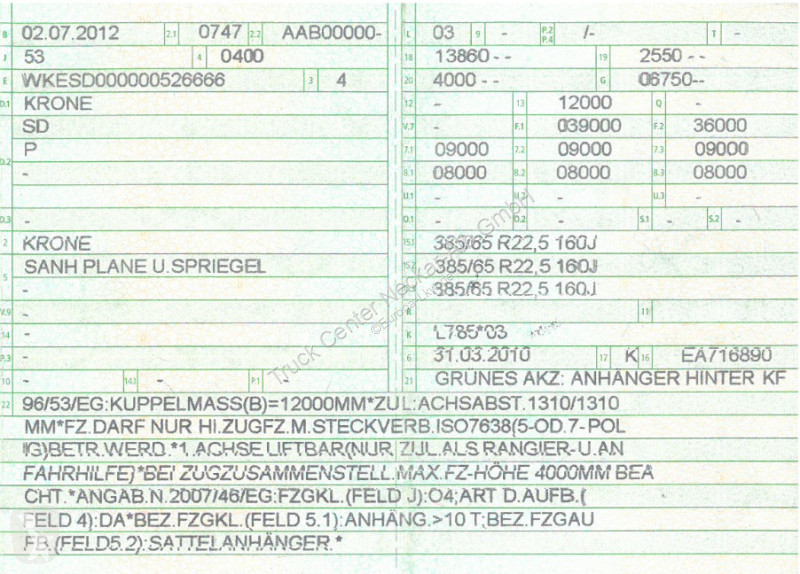 B 02.07.2012 2.1 0747 2.2 AAB00000-
J 53 4 0400
E WKESD000000526666 3 4
D.1 KRONE
SD
D.2 P
-
D.3 -
2 KRONE
5 SANH PLANE U.SPRIEGEL
-
V.9 -
14 -
P.3 -
10 - 14.1 - P.1 -
L 03 9 - - P.2 P.4 /- T -
18 13860-- 19 2550--
20 4000-- G 06750--
12 - 13 12000 Q -
V.7 - F.1 039000 F.2 36000
7.1 09000 7.2 09000 7.3 09000
8.1 08000 8.2 08000 8.3 08000
U.1 - U.2 - U.3 -
O.1 - O.2 - S.1 - S.2 -
15.1 385/65 R22,5 160J
15.2 385/65 R22,5 160J
385/65 R22,5 160J
R 11
K L785*03
6 31.03.2010 17 K 16 EA716890
21 GRÜNES AKZ: ANHÄNGER HINTER KF
22 96/53/EG:KUPPELMASS(B)=12000MM*ZUL:ACHSABST.1310/1310
MM*FZ.DARF NUR HI.ZUGFZ.M.STECKVERB.ISO7638(5-OD.7-POL
IG)BETR.WERD.*1.ACHSE LIFTBAR(NUR ZUL.ALS RANGIER-U.AN
FAHRHILFE)*BEI ZUGZUSAMMENSTELL.MAX.FZ-HÖHE 4000MM BEA
CHT.*ANGAB.N.2007/46/EG:FZGKL.(FELD J):O4;ART D.AUFB.(
FELD 4):DA*BEZ.FZGKL.(FELD 5.1):ANHÄNG.>10 T;BEZ.FZGAU
FB.(FELD5.2):SATTELANHÄNGER.*
Truck Center Neckaralb GmbH